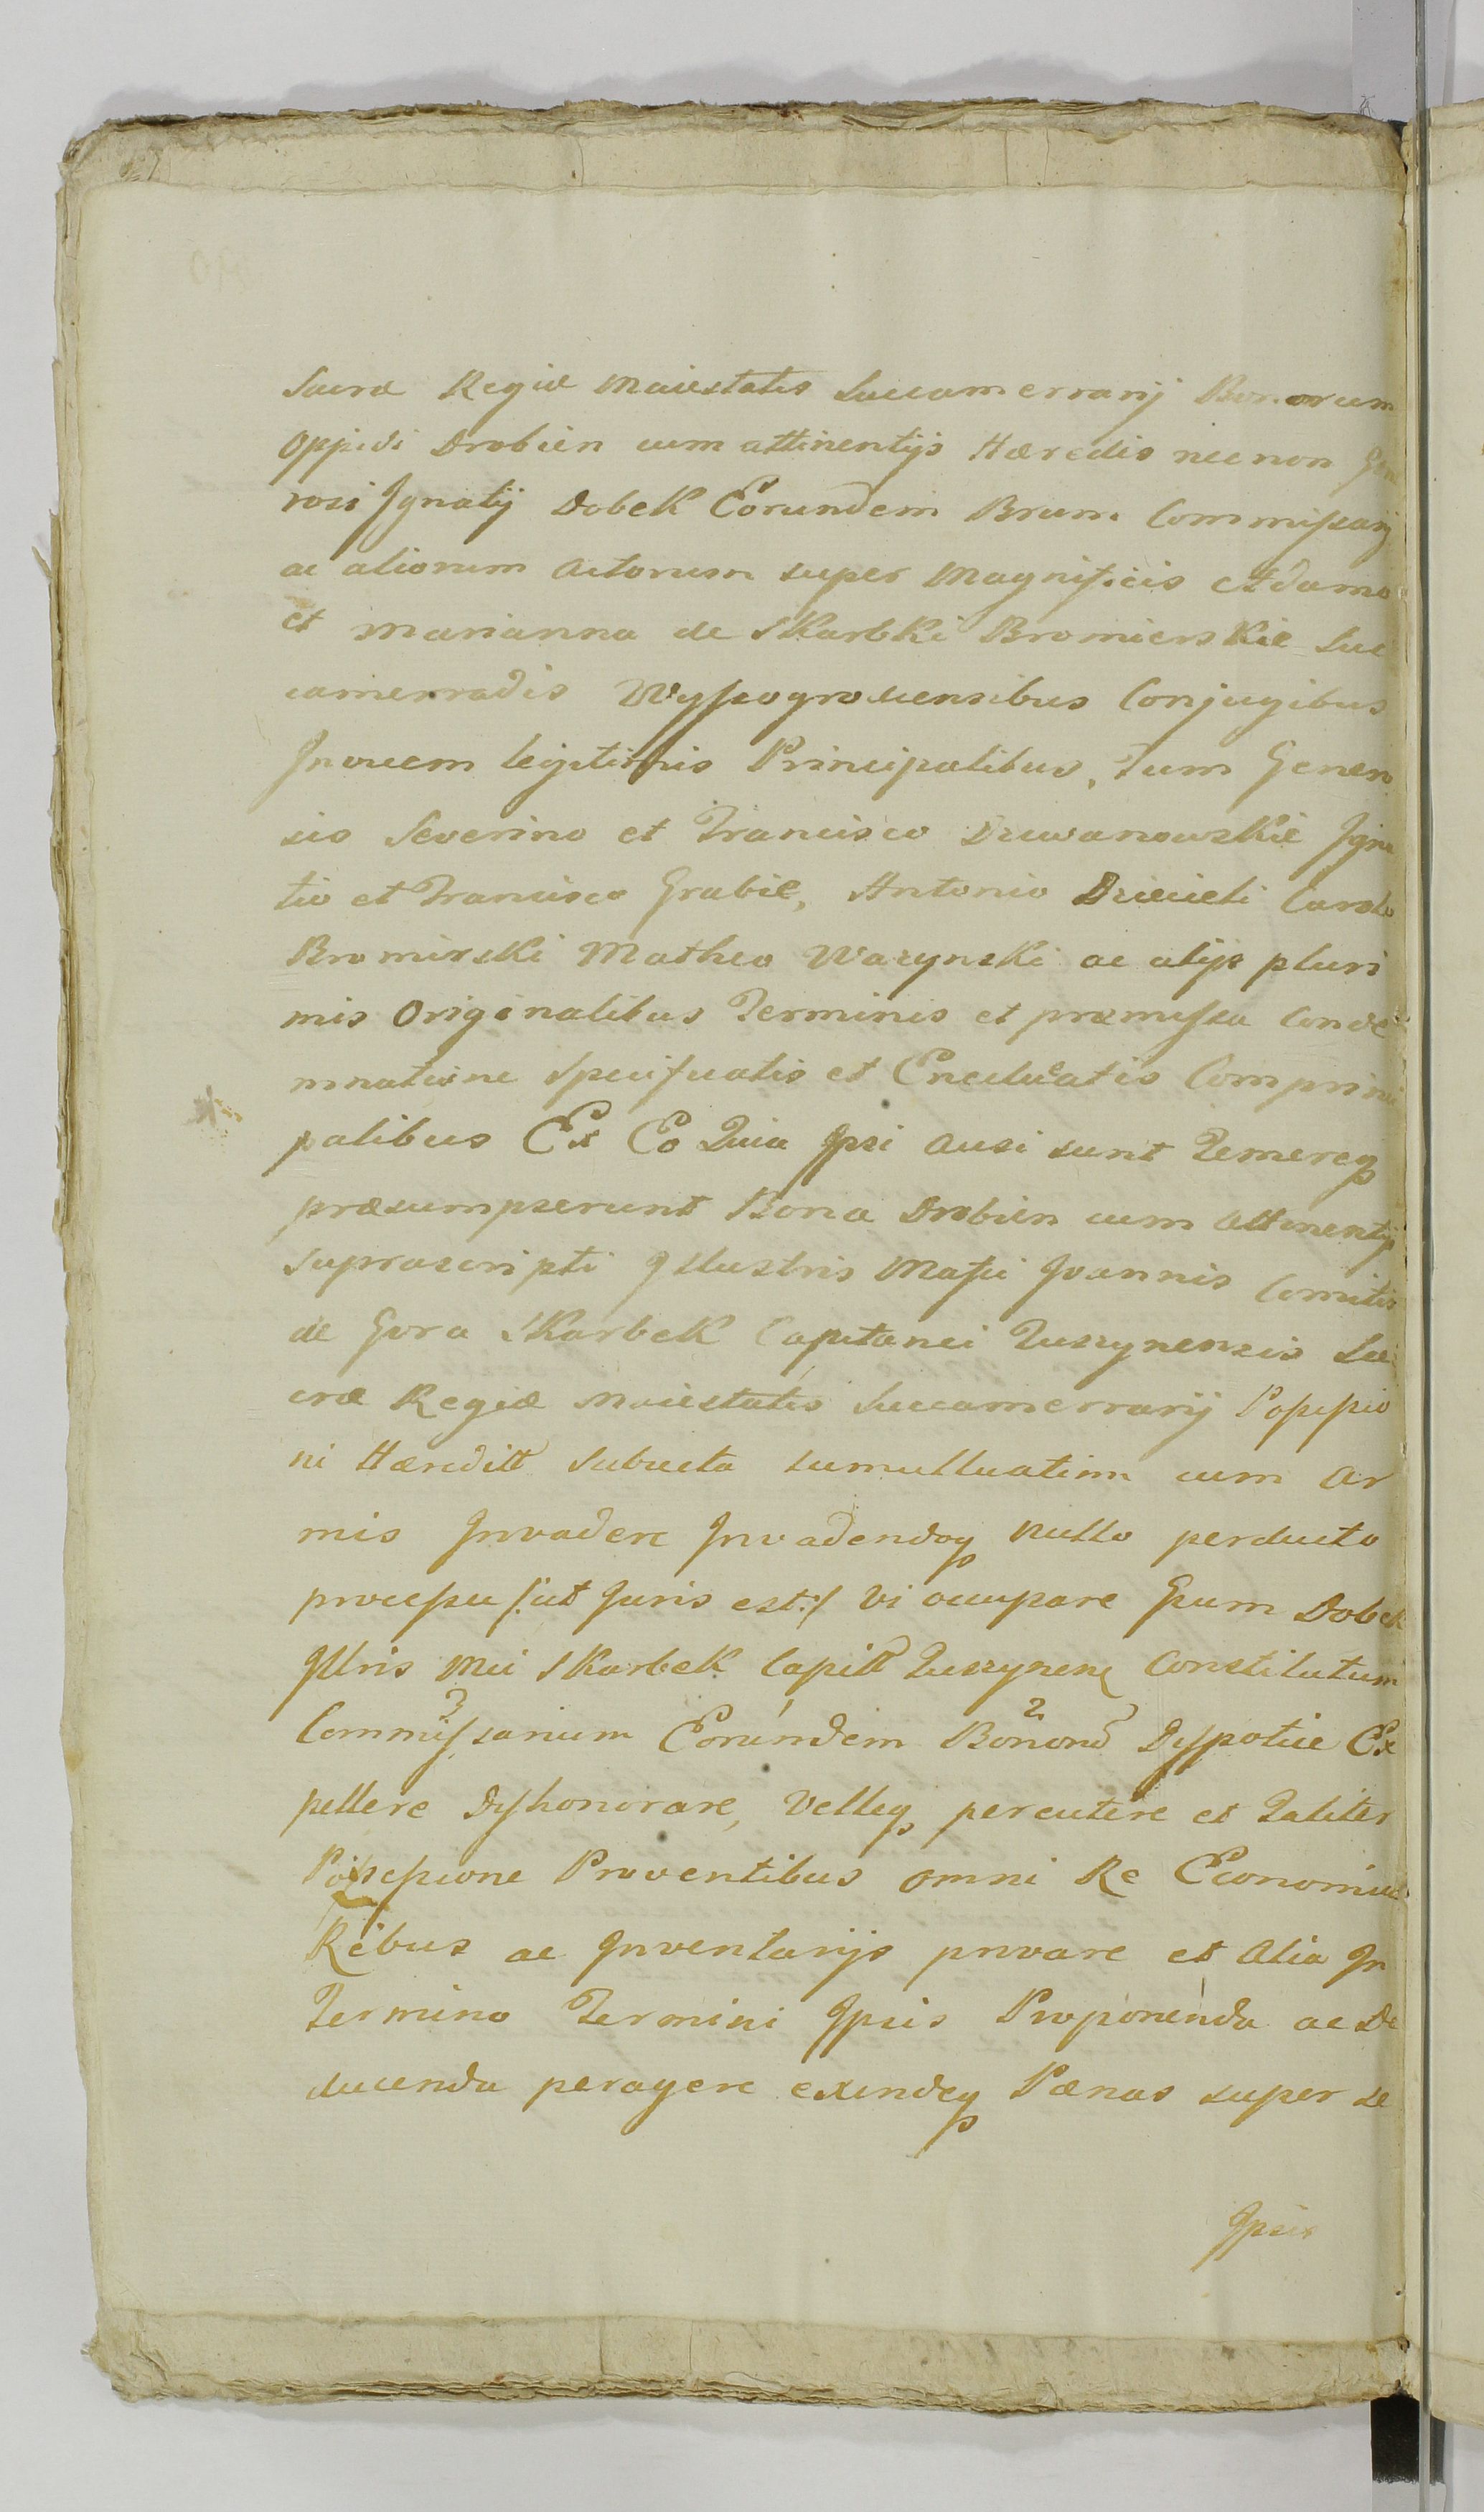 Sacræ Regiæ Maiestatis Succamerrarij Bonorum
Oppidi Drobien cum attinentijs Hæredis nec non Gene
rosi Ignatij Dobek Eorundem Brum Commissarij
ac aliorum Actorum super Magnificis Adamo
et Marianna de Skarbki Bromierskie Suc
camerradis Wyssogrovensibus Conjugibus
Invicem legitimis Principalibus, Tum Genero
sis Severino et Francisco Dziwanowskie Igna
tio et Francisco Grabie, Antonio Dziecieli Carolo
Bromirski Matheo Wazynski ac alijs pluri
mis Originalibus Terminis et præmissa Conde
mnatione Specificatis et Enucleatis Comprinci
palibus Ex Eo Quia Ipsi Ausi sunt Temereq
præsumpserunt Bona Drobien cum Attinentijs
suprascripti Illustris Mafci Joannis Comitis
de Gora Skarbek Capitanei Tuszynensis Sa
cræ Regiæ Maiestatis Succamerrarij Possessio
ni Hæreditt Subiecta tumultuatim cum Ar
mis Invadere Invadendoq nullo perducto
processu /:ut Juris est:/ Vi occupare Gsum Dobek
Illris Mci Skarbek Capitt Tuszynen Constitutum
Commissarium Eorundem Bonoru Dyspotice Ex
pellere Dyshonorare, Velleq percutere et Taliter
Possessione Proventibus omni Re Economica
Rebus ac Inventarijs privare et Alia In
Termino Termini Ipsis Proponenda ac De
ducenda peragere exindeq Pænas super se
Ipsis